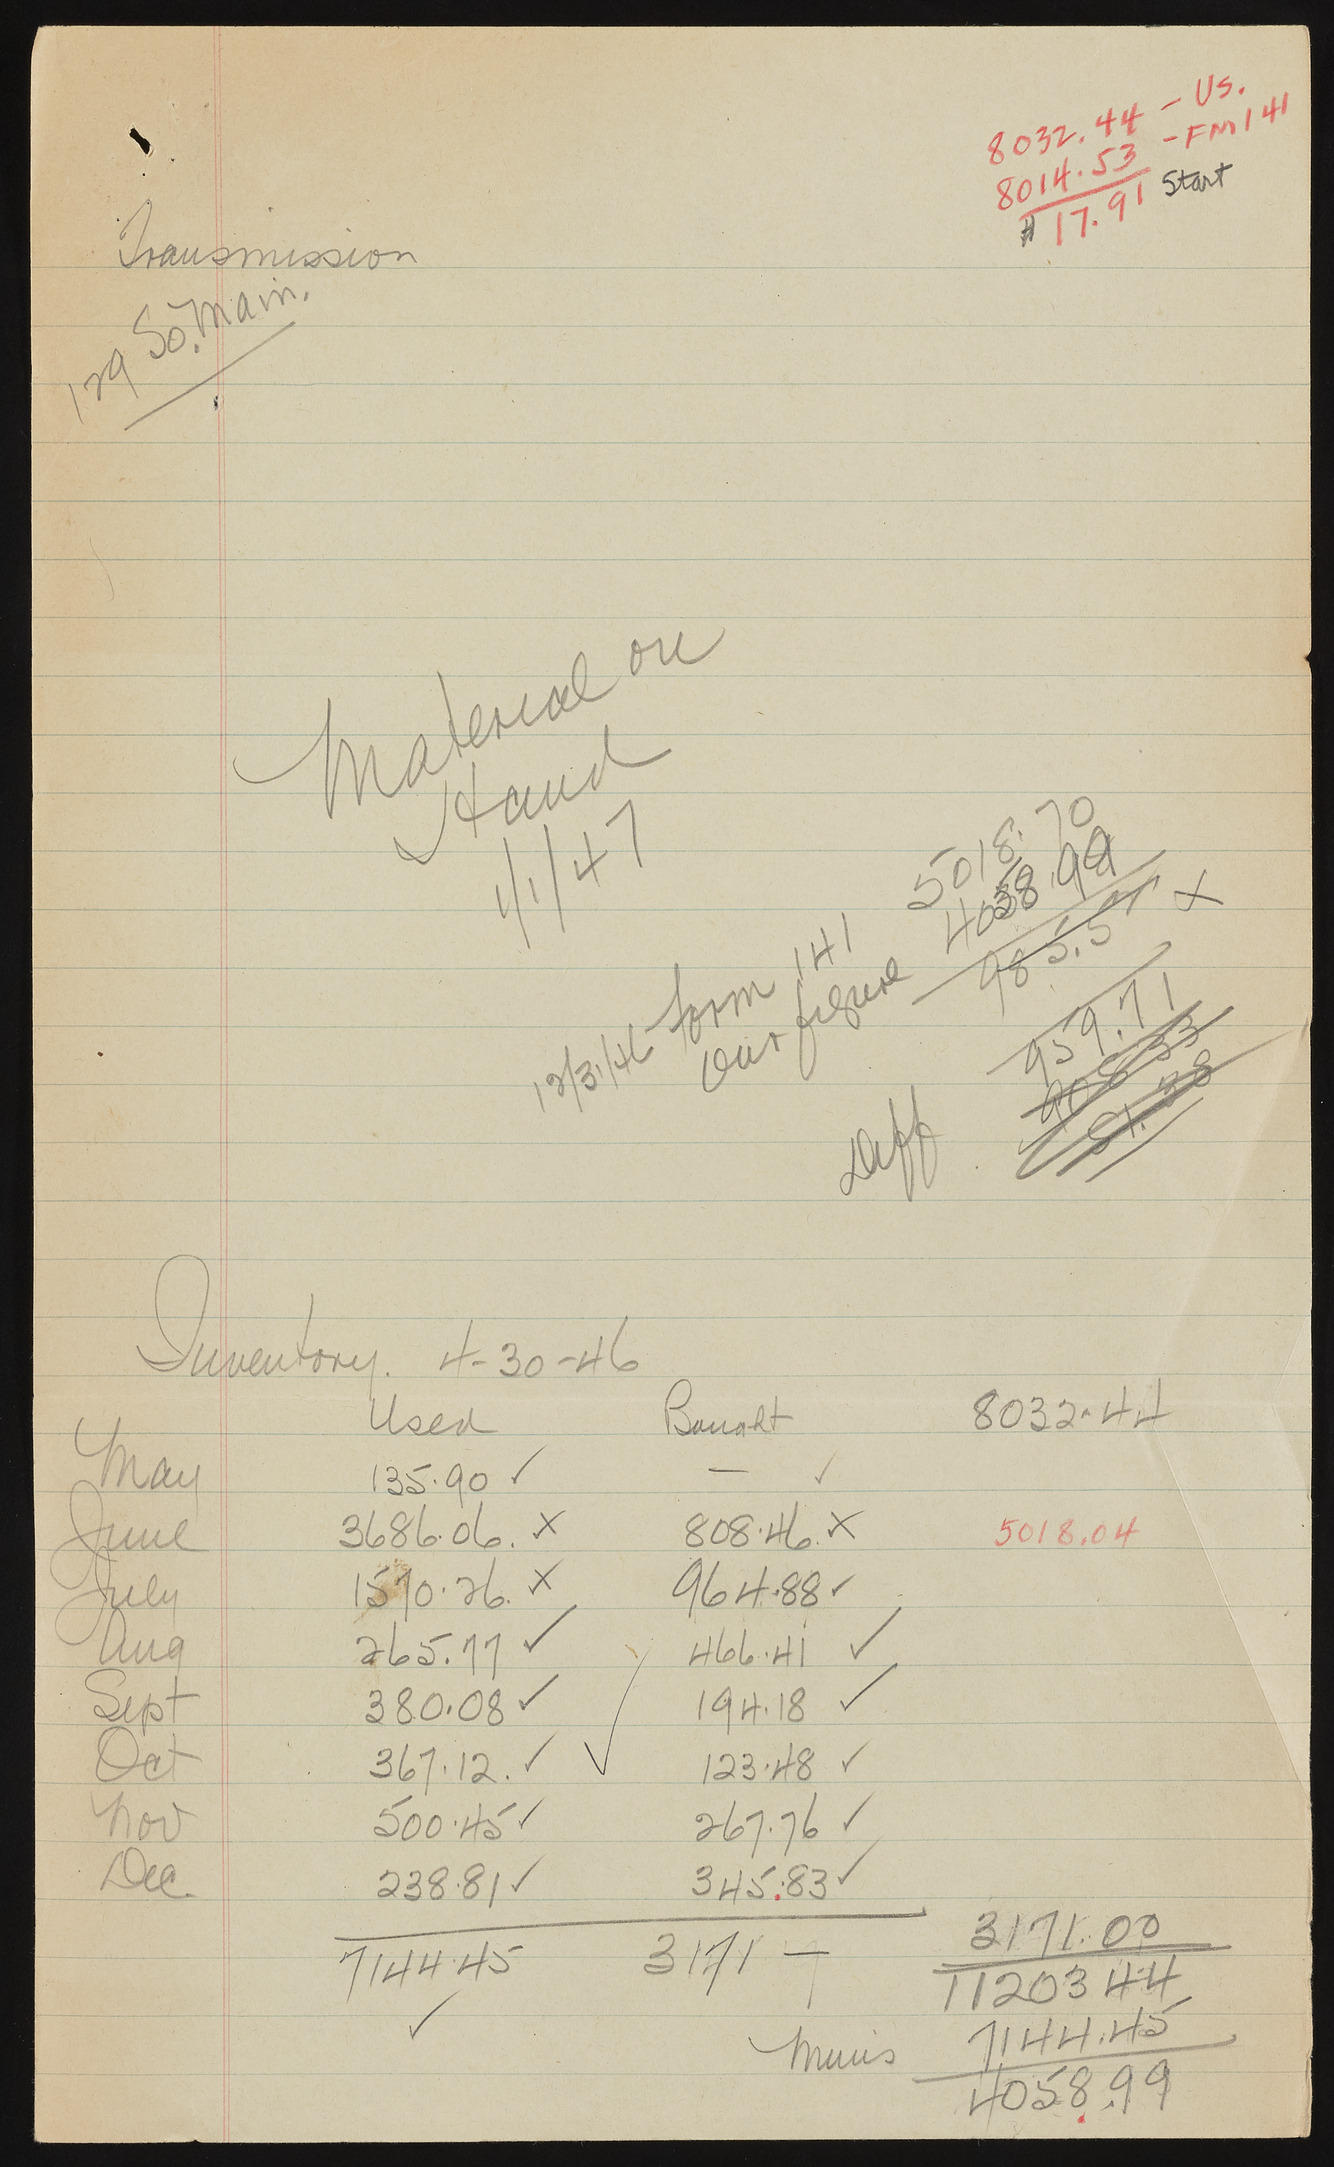 8032.44 - Us.
8014.53 - FM 141
# 17.91 Start
Transmission
129 So. Main.
Material on
Hand
1/1/47
5018.70
12/31/46 Form 141
Our figure 4058.99
985.51 x
959.71
Diff
Inventory. 4-30-46
Used Bought 8032.44
May 135.90 ✓ — ✓
June 3686.06. x 808.46. x 5018.04
July 1570.26. x 964.88 ✓
Aug 265.77 ✓ 466.41 ✓
Sept 380.08 ✓ 194.18 ✓
Oct 367.12. ✓ ✓ 123.48 ✓
Nov 500.45 ✓ 267.76 ✓
Dec. 238.81 ✓ 345.83 ✓
3171.00
7144.45 3171 — 11203 44
✓
Minus 7144.45
4058.99